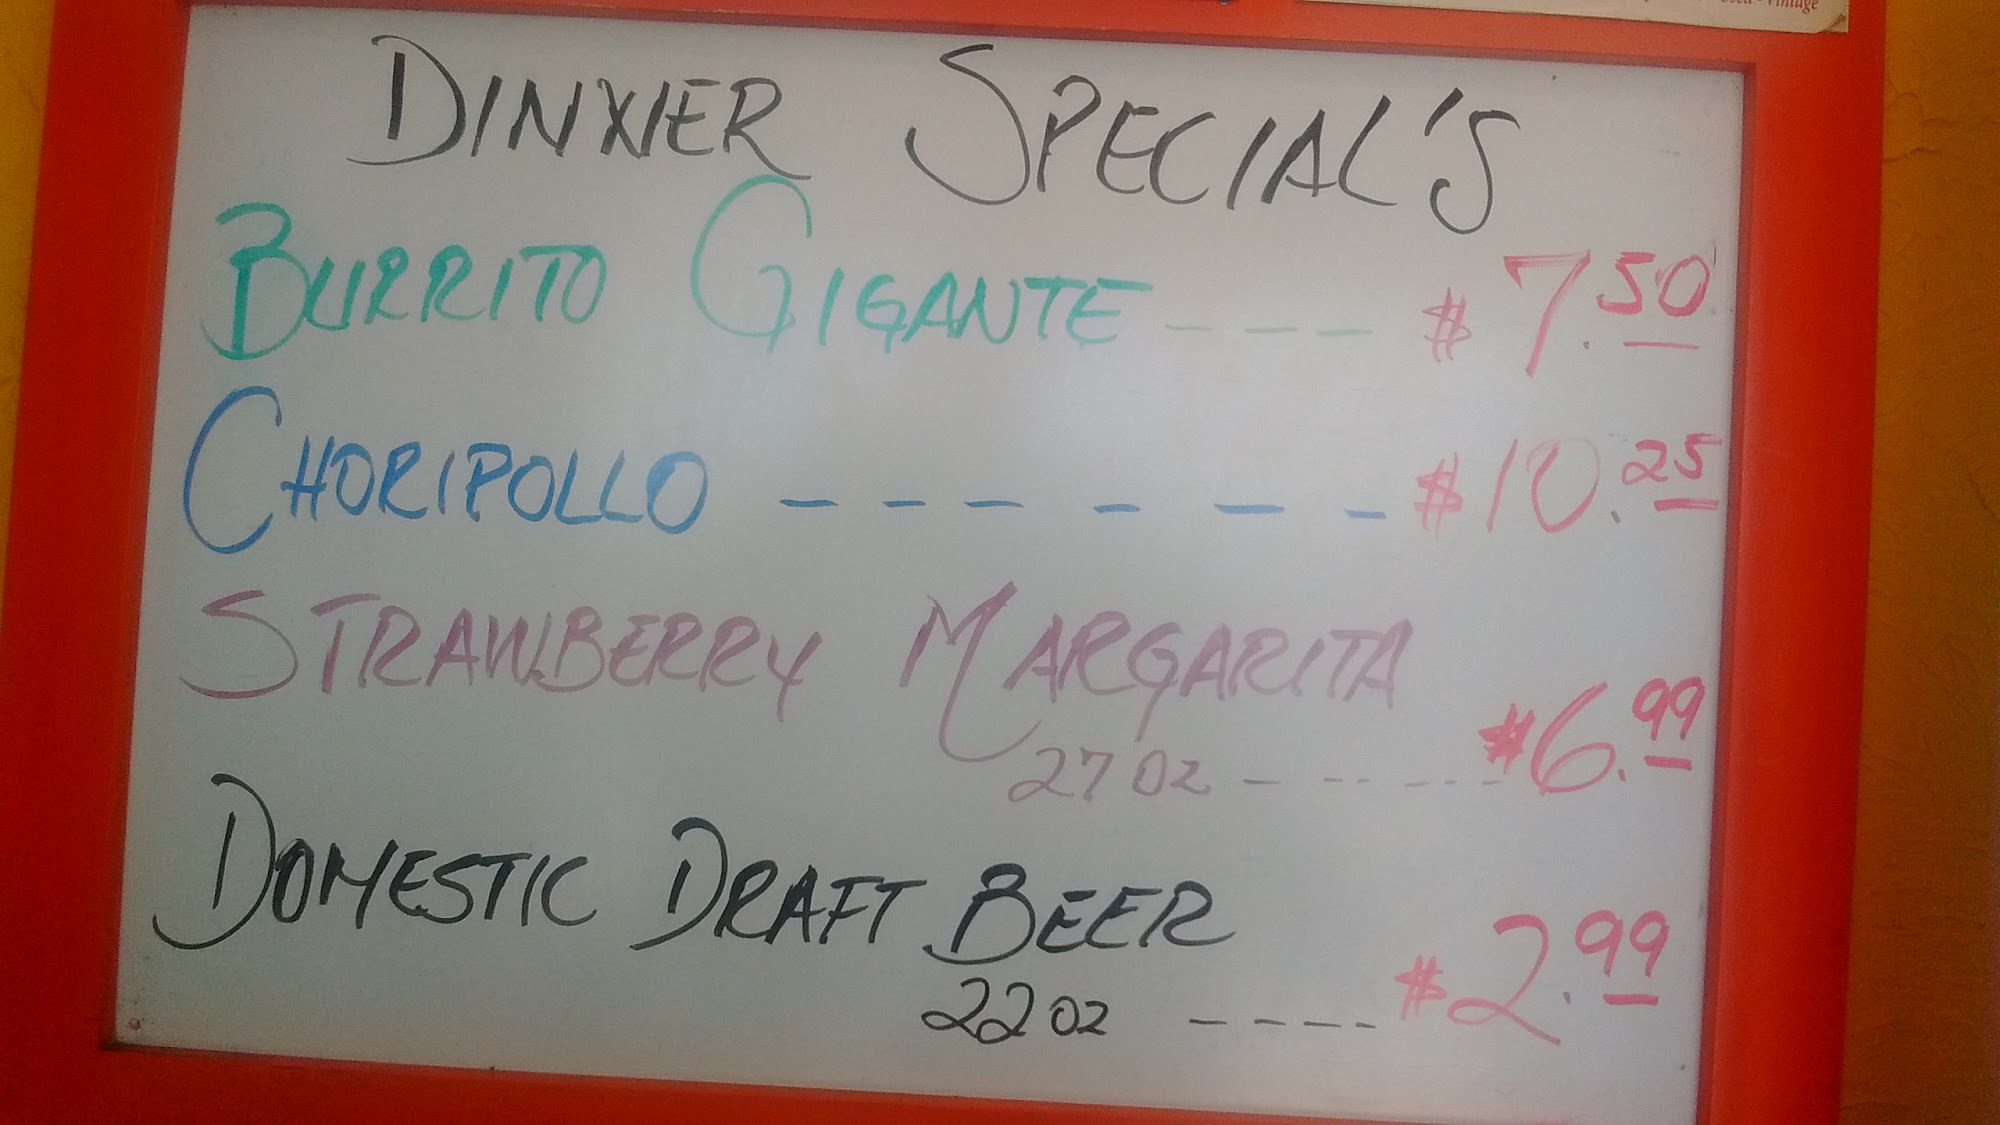 Used - Vintage
DINNER SPECIAL'S
BURRITO GIGANTE --- $7.50
CHORIPOLLO ------ $10.25
STRAWBERRY MARGARITA
27 OZ ------ $6.99
DOMESTIC DRAFT BEER
22 OZ ---- $2.99